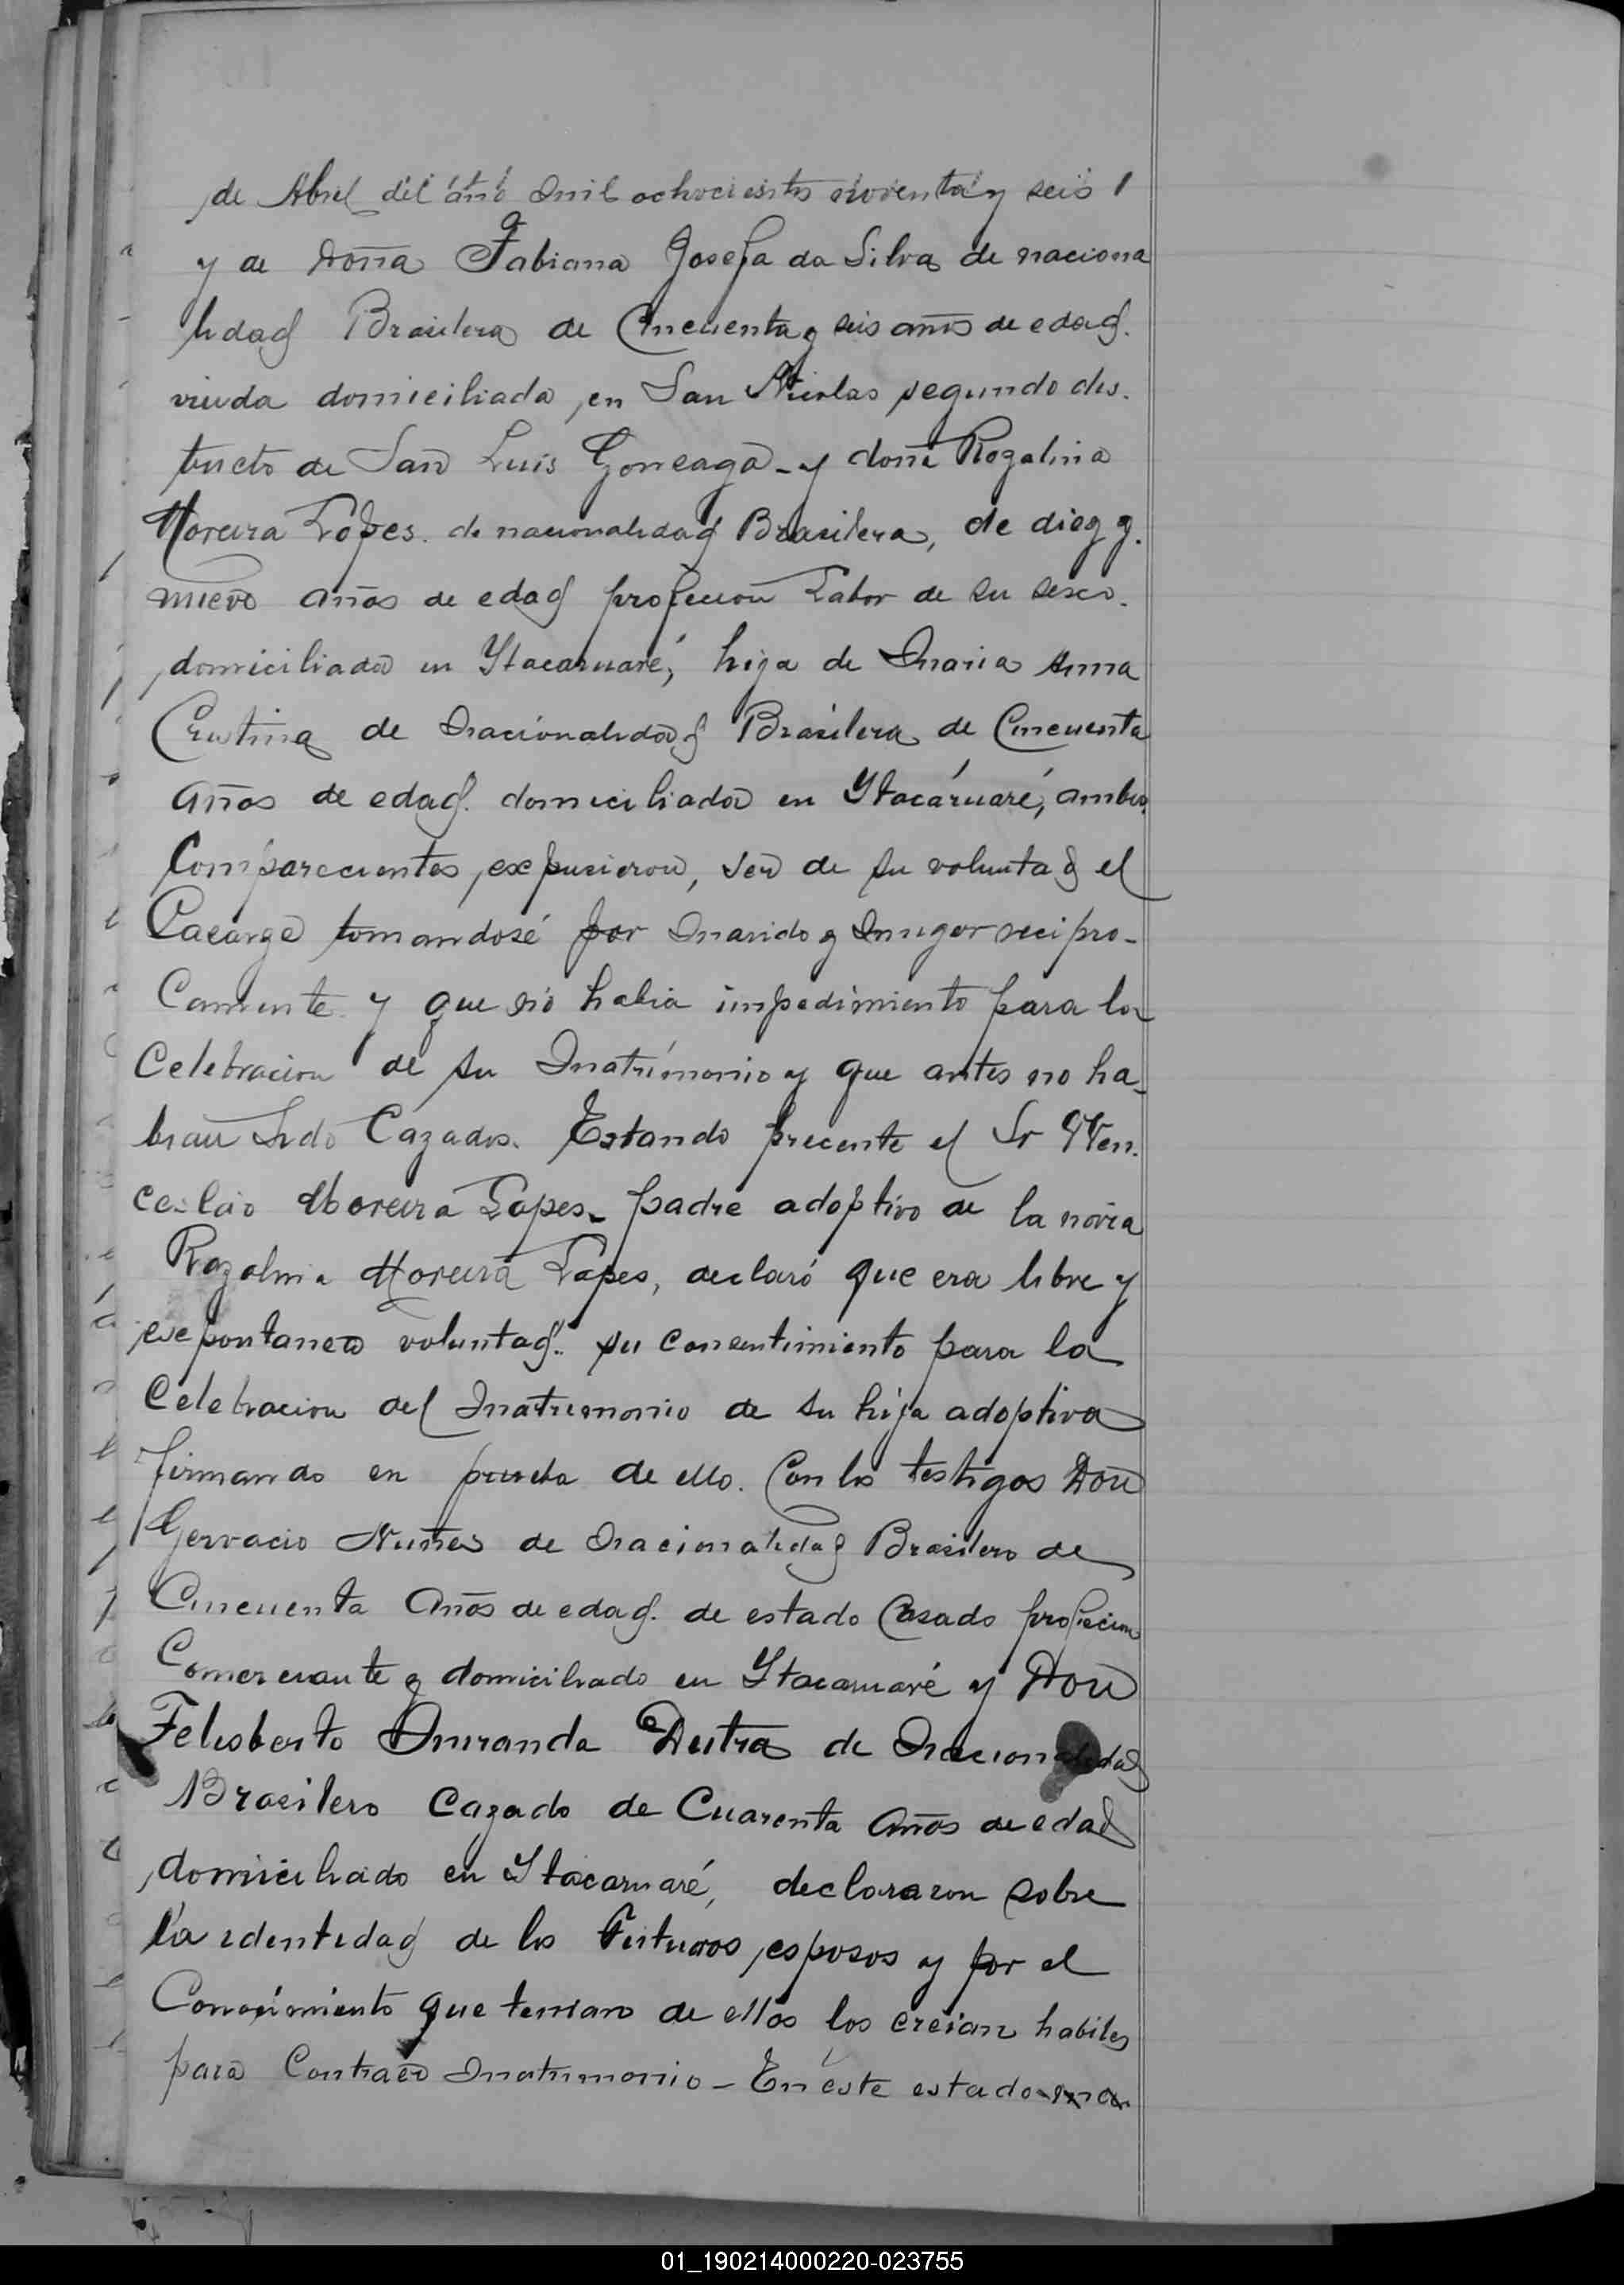 de Abril del año mil ochocientos noventa y seis
y de doña Fabiana Josefa da Silva de naciona
lidad Brasilera de Cincuenta y seis años de edad.
viuda domiciliada, en San Nicolas segundo dis-
tricto de San Luis Goncaga - y doña Rozalina
Moreira Lopes. de nacionalidad Brasilera, de diez y
nuevo años de edad profecion Labor de su sexo.
domiciliada en Ytacaruaré, hija de Maria Anna
Cristina de nacionalidad Brasilera de Cincuenta
años de edad. domiciliada en Ytacaruaré, ambos
Comparecientes, expusieron, ser de su voluntad el
Cacarse tomandosé por marido y muger recipro-
Camente y que no habia impedimiento para la
Celebracion de su matrimonio y que antes no ha-
bian sido Cazados. Estando precente el Sr Wen-
ceslao Moreira Lopes - padre adoptivo de la novia
Rozalina Moreira Lopes, declaró que era libre y
expontanea voluntad. su consentimiento para la
Celebracion del matrimonio de su hija adoptiva
firmando en prueba de ello. Con los testigos Don
Gervacio Nuñes de nacionalidad Brasilero de
Cincuenta años de edad. de estado Casado profecion
Comerciante y domiciliado en Ytacaruaré y Don
Felisberto Miranda Dutra de nacionalidad
Brasilero Cazado de Cuarenta años de edad
domiciliado en Ytacaruaré, declararon sobre
la identidad de los futuros, esposos y por el
Conocimiento que tenian de ellos los creian habiles
para Contraer matrimonio - En este estado
01_190214000220-023755